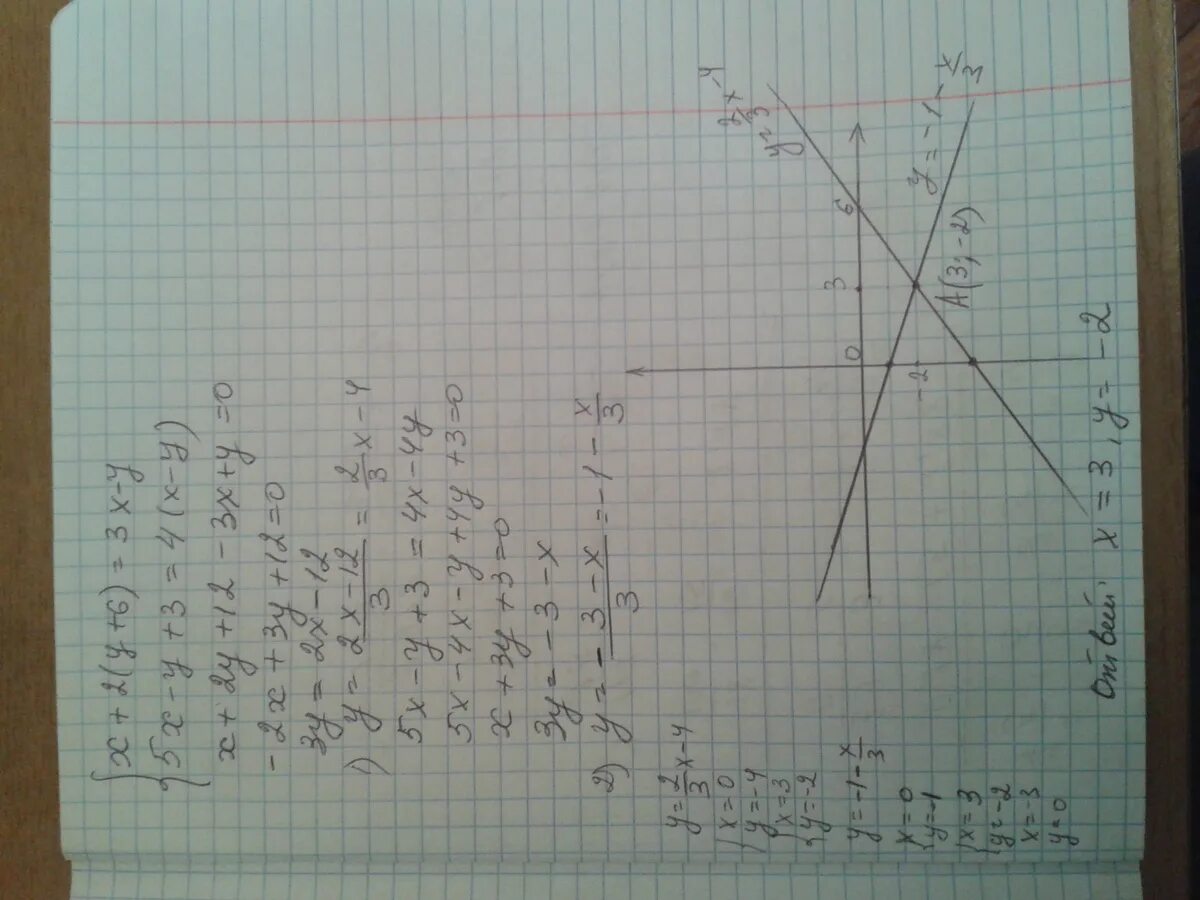 { x + 2(y+6) = 3x-y
{ 5x - y + 3 = 4(x-y)
x + 2y + 12 - 3x + y = 0
-2x + 3y + 12 = 0
3y = 2x - 12
1) y = \frac{2x-12}{3} = \frac{2}{3}x - 4
5x - y + 3 = 4x - 4y
5x - 4x - y + 4y + 3 = 0
x + 3y + 3 = 0
3y = -3 - x
2) y = \frac{-3-x}{3} = -1 - \frac{x}{3}
y = \frac{2}{3}x - 4
{ x = 0
{ y = -4
{ x = 3
{ y = -2
y = -1 - \frac{x}{3}
{ x = 0
{ y = -1
{ x = 3
{ y = -2
x = -3
y = 0
y = \frac{2}{3}x - 4
0
3
6
-2
y = -1 - \frac{x}{3}
A(3; -2)
Ответ: x = 3, y = -2